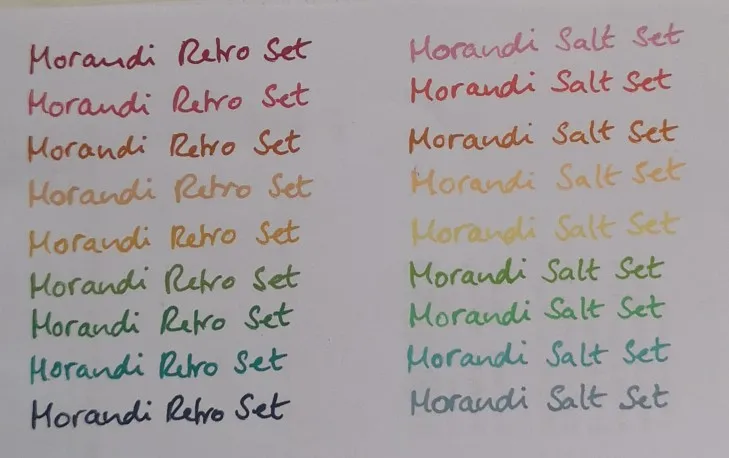 Morandi Retro Set
Morandi Retro Set
Morandi Retro Set
Morandi Retro Set
Morandi Retro Set
Morandi Retro Set
Morandi Retro Set
Morandi Retro Set
Morandi Retro Set
Morandi Salt Set
Morandi Salt Set
Morandi Salt Set
Morandi Salt Set
Morandi Salt Set
Morandi Salt Set
Morandi Salt Set
Morandi Salt Set
Morandi Salt Set